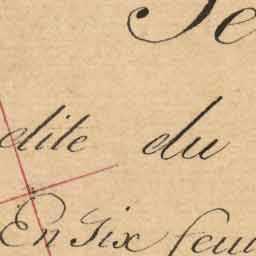 Se
dite du
En Six feui